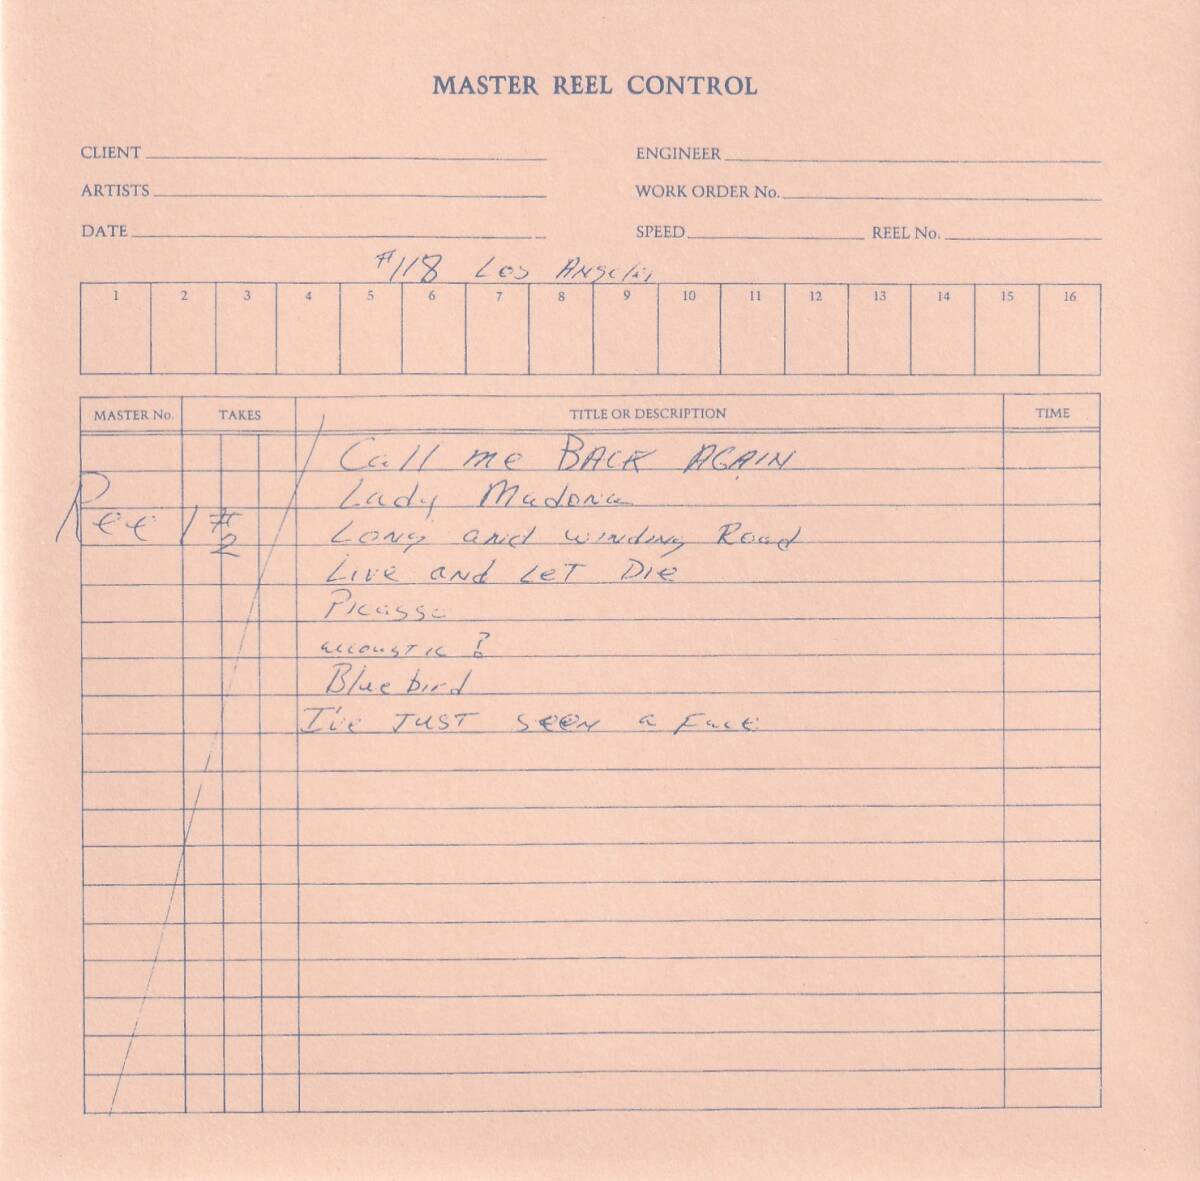 MASTER REEL CONTROL
CLIENT ENGINEER
ARTISTS WORK ORDER No.
DATE SPEED REEL No.
#118 Los Angeles
1 2 3 4 5 6 7 8 9 10 11 12 13 14 15 16
MASTER No. TAKES TITLE OR DESCRIPTION TIME
Call me BACK AGAIN
Lady Madona
Reel # 2 Long and winding Road
Live and LET Die
Picasso
accoustic ?
Blue bird
I've JUST seen a Face